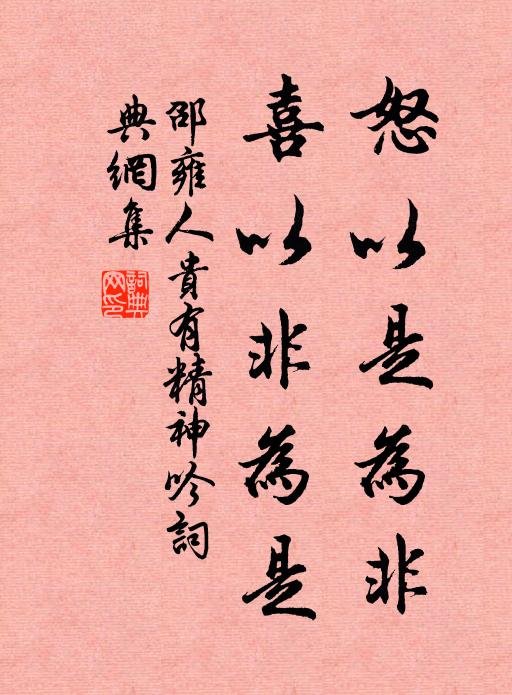 怒以是為非
喜以非為是
邵雍人貴有精神吟詞
典網集
詞典網印